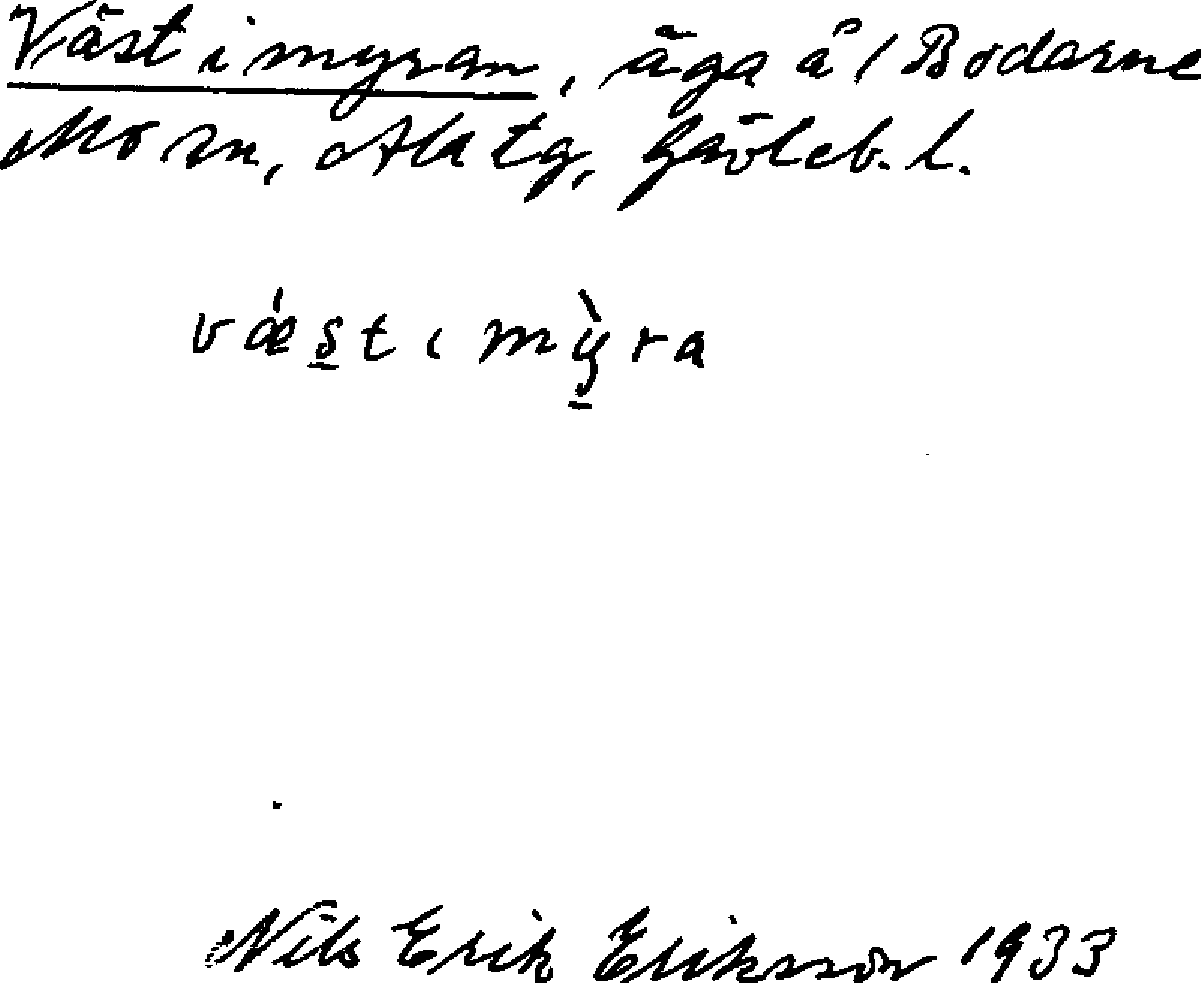 Väst i myran, äga å / Bodarne
Mo sn, Ala tg, Gävleb. l.
vǽs̲t ɩ mỳ̲ra
Nils Erik Eriksson 1933